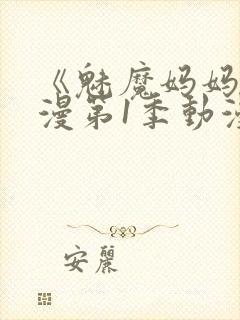 《魅魔妈妈
漫第1季動漫
安麗